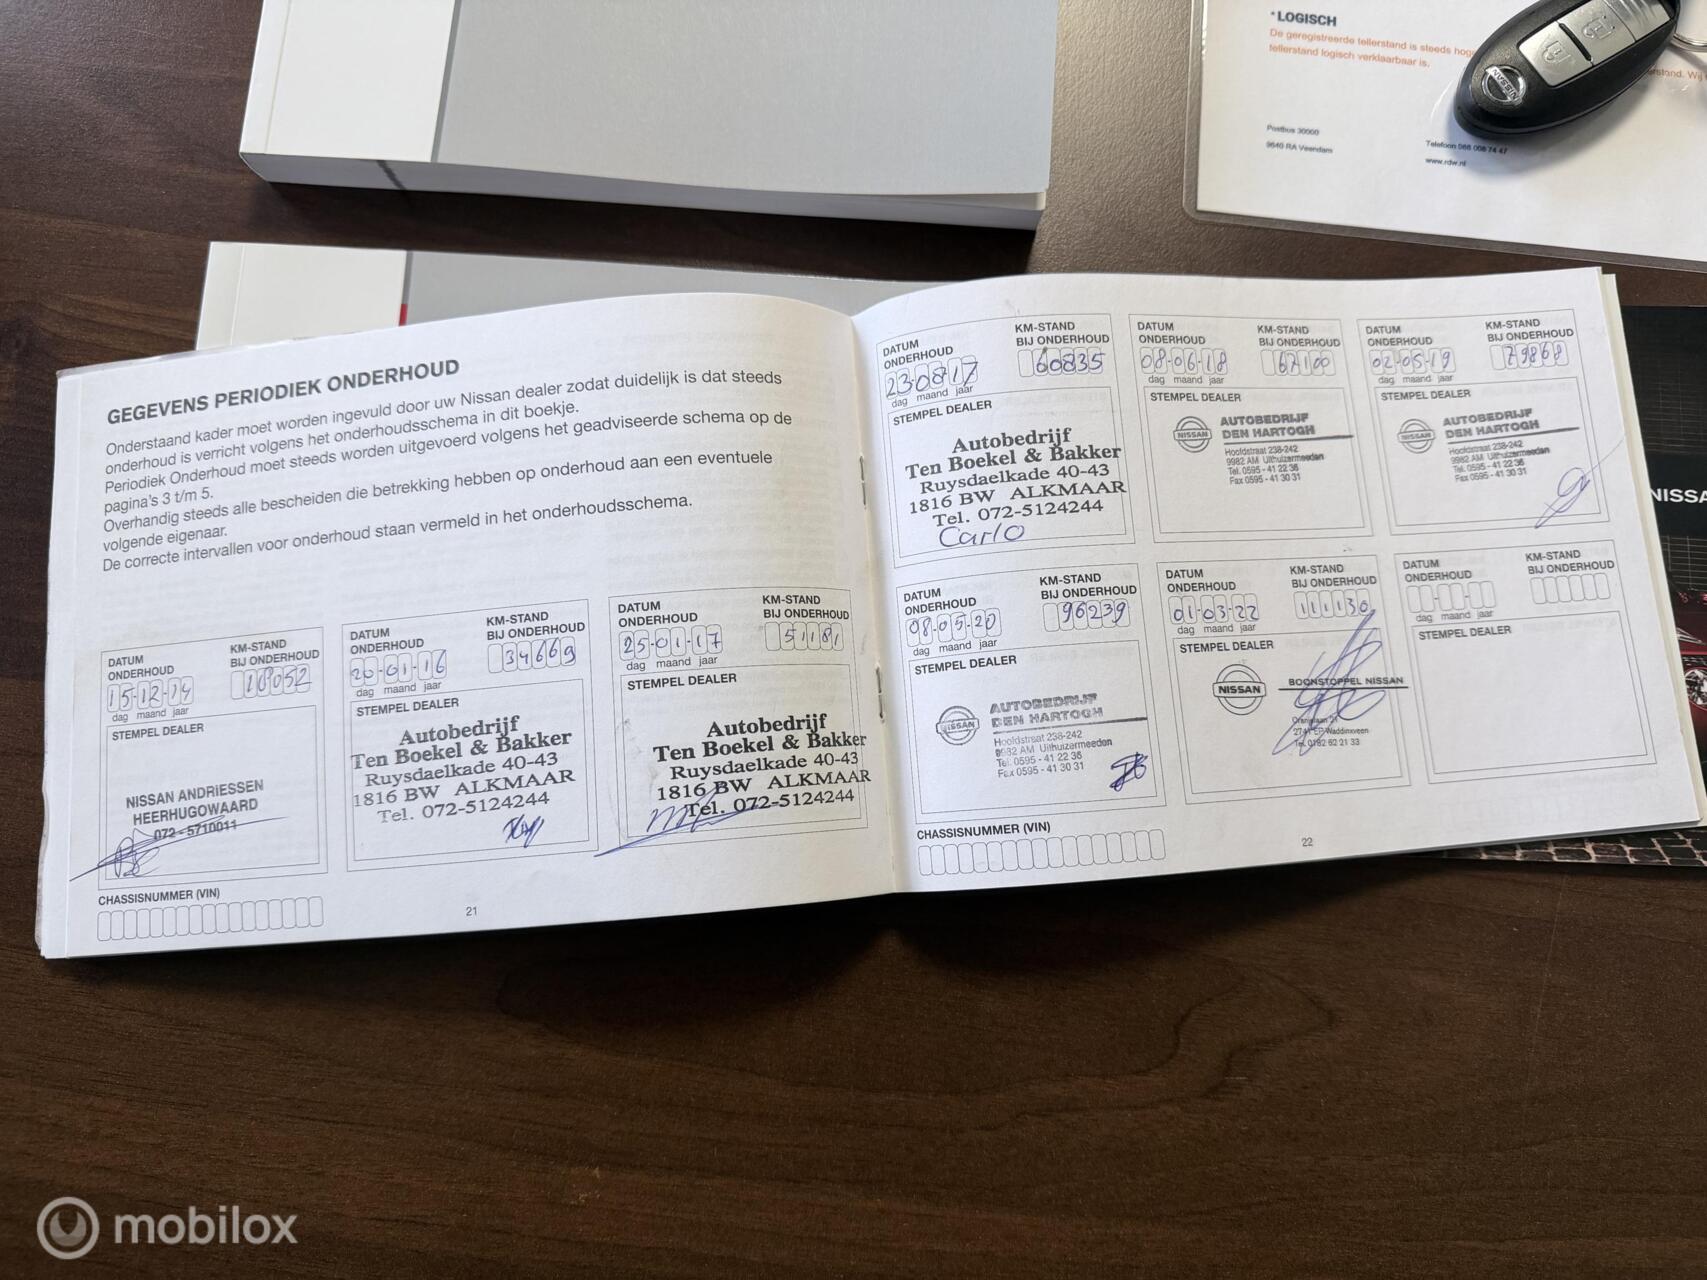 *LOGISCH
De geregistreerde tellerstand is steeds
tellerstand logisch verklaarbaar is.
Postbus 30000
9640 RA Veendam
Telefoon 088 008 74 47
www.rdw.nl
NISSAN
GEGEVENS PERIODIEK ONDERHOUD
Onderstaand kader moet worden ingevuld door uw Nissan dealer zodat duidelijk is dat steeds
onderhoud is verricht volgens het onderhoudsschema in dit boekje.
Periodiek Onderhoud moet steeds worden uitgevoerd volgens het geadviseerde schema op de
pagina's 3 t/m 5.
Overhandig steeds alle bescheiden die betrekking hebben op onderhoud aan een eventuele
volgende eigenaar.
De correcte intervallen voor onderhoud staan vermeld in het onderhoudsschema.
DATUM ONDERHOUD
KM-STAND BIJ ONDERHOUD
15-12-14
18052
dag maand jaar
STEMPEL DEALER
NISSAN ANDRIESSEN
HEERHUGOWAARD
072 - 5710011
CHASSISNUMMER (VIN)
DATUM ONDERHOUD
KM-STAND BIJ ONDERHOUD
20-01-16
34669
dag maand jaar
STEMPEL DEALER
Autobedrijf
Ten Boekel & Bakker
Ruysdaelkade 40-43
1816 BW ALKMAAR
Tel. 072-5124244
DATUM ONDERHOUD
KM-STAND BIJ ONDERHOUD
25-01-17
51181
dag maand jaar
STEMPEL DEALER
Autobedrijf
Ten Boekel & Bakker
Ruysdaelkade 40-43
1816 BW ALKMAAR
Tel. 072-5124244
21
DATUM ONDERHOUD
KM-STAND BIJ ONDERHOUD
23-08-17
60835
dag maand jaar
STEMPEL DEALER
Autobedrijf
Ten Boekel & Bakker
Ruysdaelkade 40-43
1816 BW ALKMAAR
Tel. 072-5124244
Carlo
DATUM ONDERHOUD
KM-STAND BIJ ONDERHOUD
08-06-18
67100
dag maand jaar
STEMPEL DEALER
NISSAN
AUTOBEDRIJF
DEN HARTOGH
Hoofdstraat 238-242
9982 AM Uithuizermeeden
Tel. 0595 - 41 22 36
Fax 0595 - 41 30 31
DATUM ONDERHOUD
KM-STAND BIJ ONDERHOUD
02-05-19
79868
dag maand jaar
STEMPEL DEALER
NISSAN
AUTOBEDRIJF
DEN HARTOGH
Hoofdstraat 238-242
9982 AM Uithuizermeeden
Tel. 0595 - 41 22 36
Fax 0595 - 41 30 31
DATUM ONDERHOUD
KM-STAND BIJ ONDERHOUD
08-05-20
96239
dag maand jaar
STEMPEL DEALER
NISSAN
AUTOBEDRIJF
DEN HARTOGH
Hoofdstraat 238-242
9982 AM Uithuizermeeden
Tel. 0595 - 41 22 36
Fax 0595 - 41 30 31
DATUM ONDERHOUD
KM-STAND BIJ ONDERHOUD
01-03-22
111130
dag maand jaar
STEMPEL DEALER
NISSAN
BOONSTOPPEL NISSAN
2741 EP Waddinxveen
Tel. 0182 62 21 33
DATUM ONDERHOUD
KM-STAND BIJ ONDERHOUD
dag maand jaar
STEMPEL DEALER
CHASSISNUMMER (VIN)
22
NISSA
mobilox